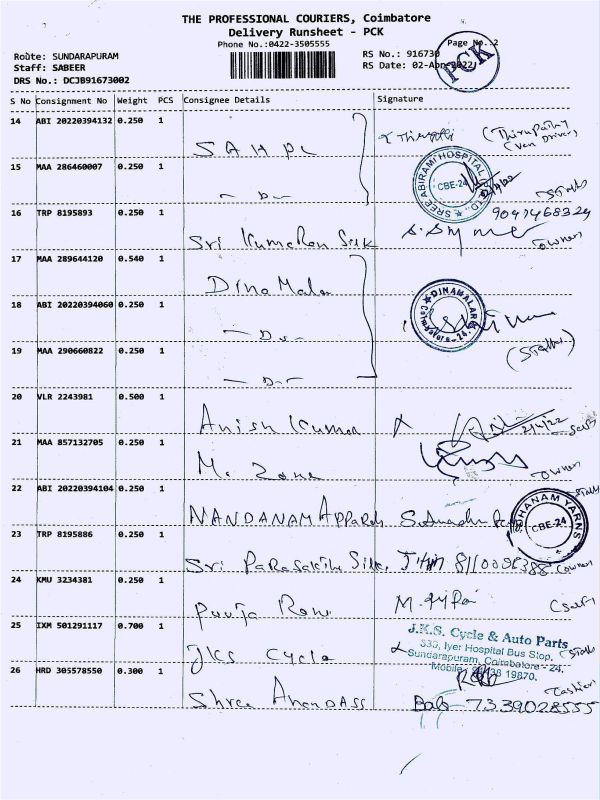 THE PROFESSIONAL COURIERS, Coimbatore
Delivery Runsheet - PCK
Phone No.:0422-3505555
Page No.:2
PCK
Route: SUNDARAPURAM
Staff: SABEER
DRS No.: DCJB91673002
RS No.: 916730
RS Date: 02-Apr-2022
S No Consignment No Weight PCS Consignee Details Signature
14 ABI 20220394132 0.250 1
(Van Driver)
15 MAA 286460007 0.250 1
SREE ABIRAMI HOSPITAL
CBE-24
16 TRP 8195893 0.250 1 Sri Kumaran Silk
owner
17 MAA 289644120 0.540 1 Dina Malar
18 ABI 20220394060 0.250 1
DINAMALAR
Coimbatore-24.
19 MAA 290660822 0.250 1
(Staff)
20 VLR 2243981 0.500 1 Anish Kumar
2/4/22
Self
21 MAA 857132705 0.250 1
owner
22 ABI 20220394104 0.250 1 NANDANAM Apparels
DHANAM YARNS
CBE-24
23 TRP 8195886 0.250 1
owner
24 KMU 3234381 0.250 1
25 IXM 501291117 0.700 1 JKS Cycle
J.K.S. Cycle & Auto Parts
Iyer Hospital Bus Stop,
Sundarapuram, Coimbatore - 24.
26 HRD 305578550 0.300 1 Shree Anandass
Cashier
7339028555